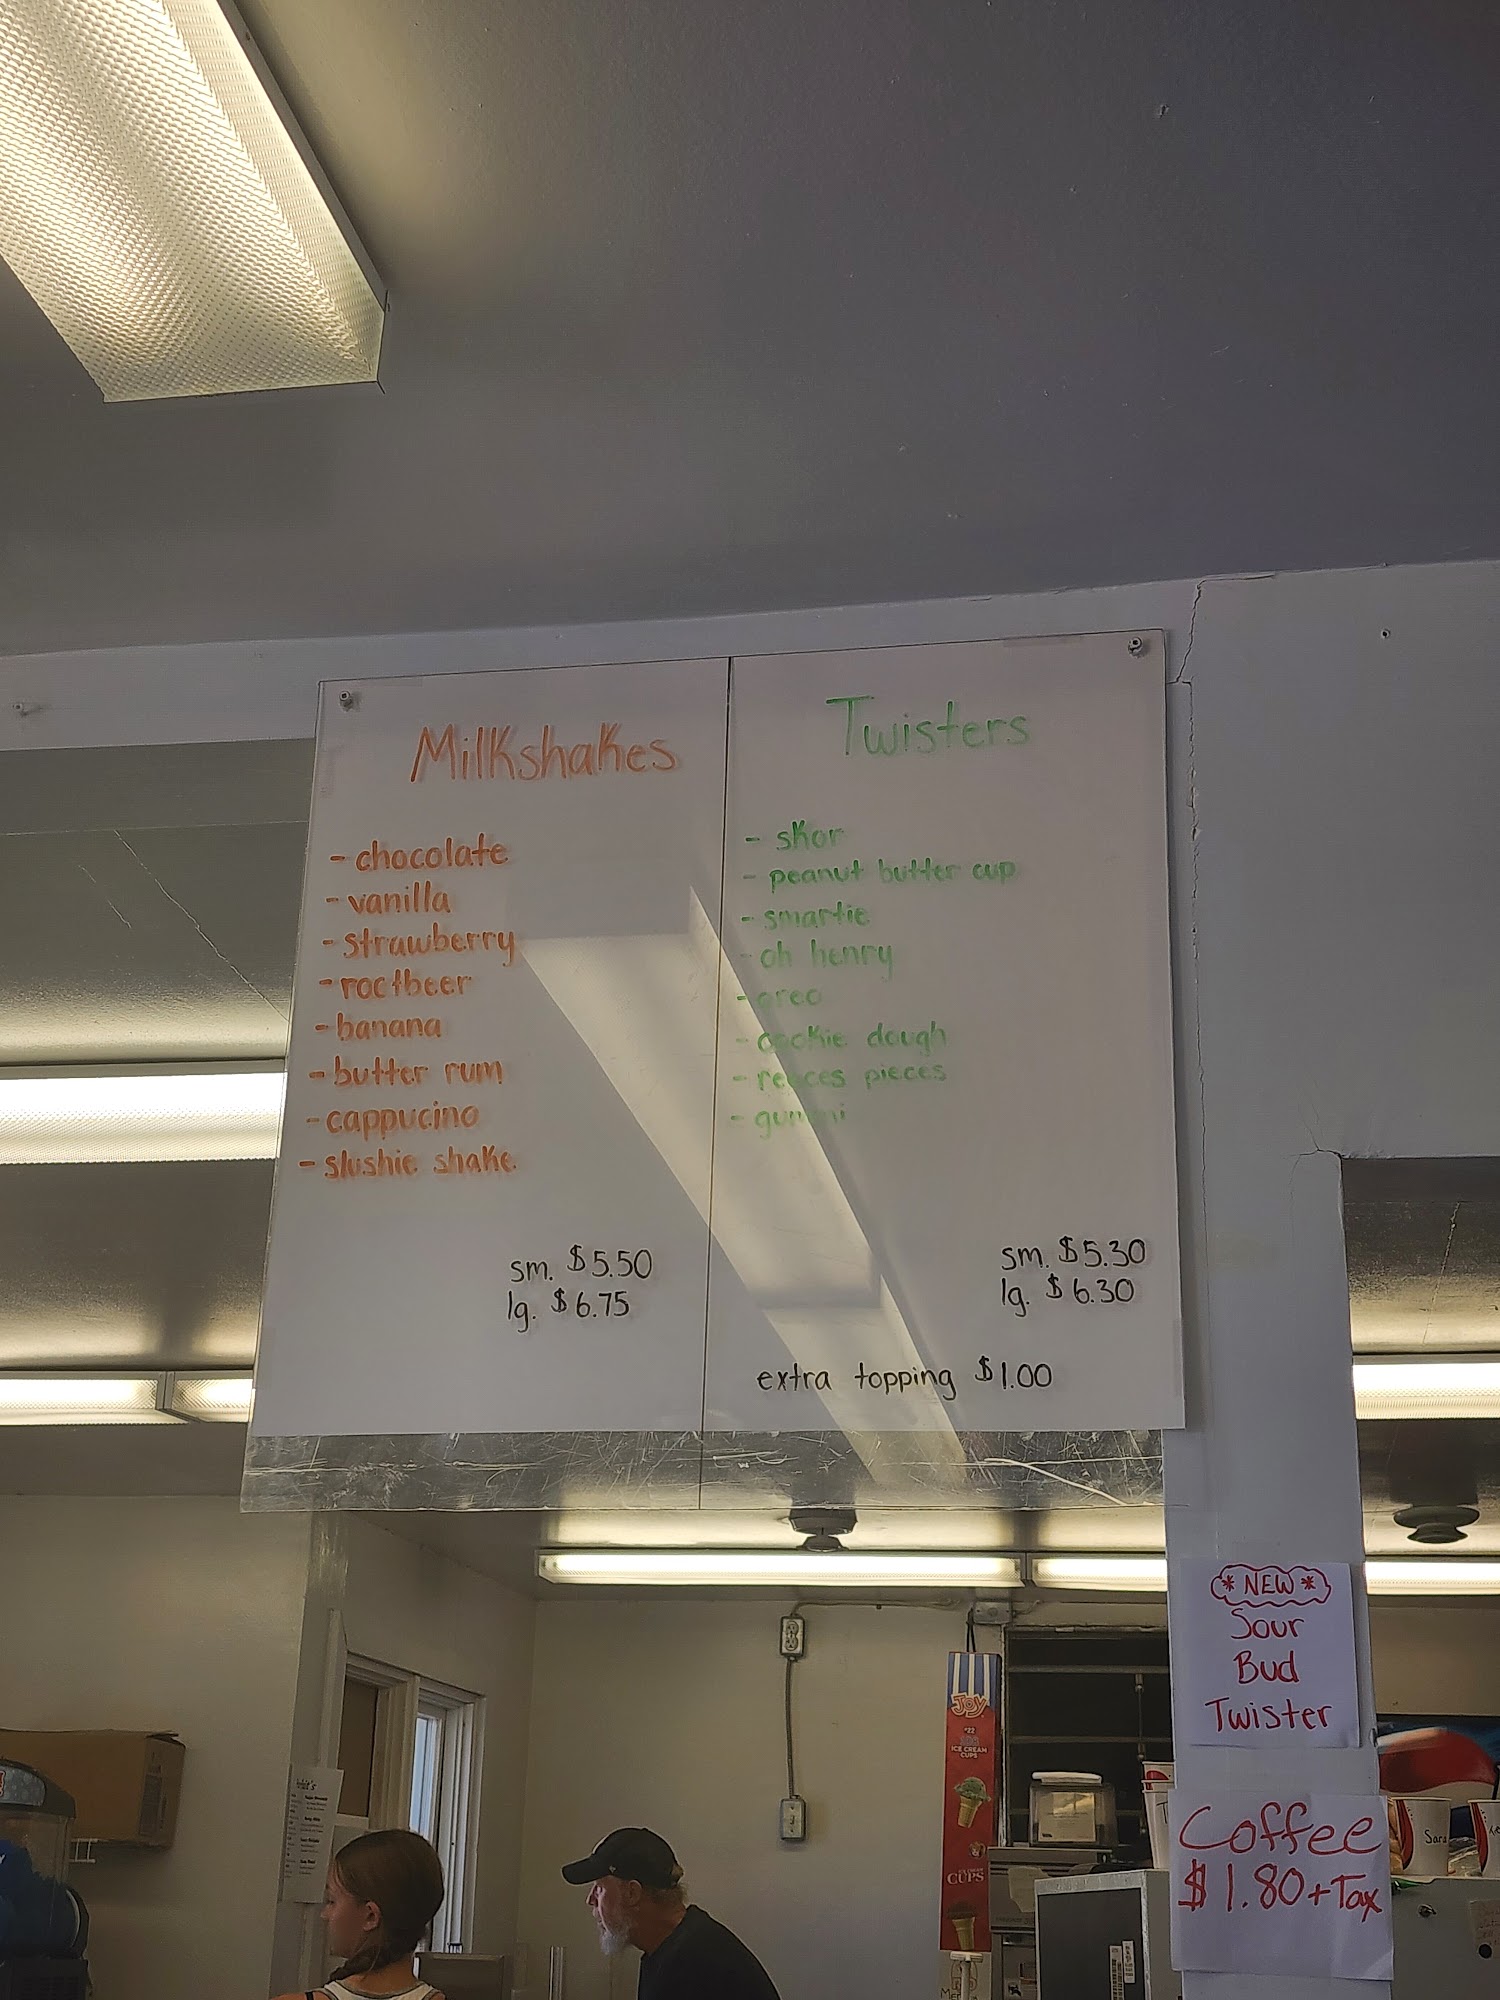 Milkshakes
- chocolate
- vanilla
- strawberry
- rootbeer
- banana
- butter rum
- cappucino
- slushie shake
sm. $5.50
lg. $6.75
Twisters
- skor
- peanut butter cup
- smartie
- oh henry
- oreo
- cookie dough
- reeces pieces
- gummi
sm. $5.30
lg. $6.30
extra topping $1.00
* NEW *
Sour
Bud
Twister
Coffee
$1.80+Tax
JOY
#22
ICE CREAM
CUPS
ICE CREAM
CUPS
Sara